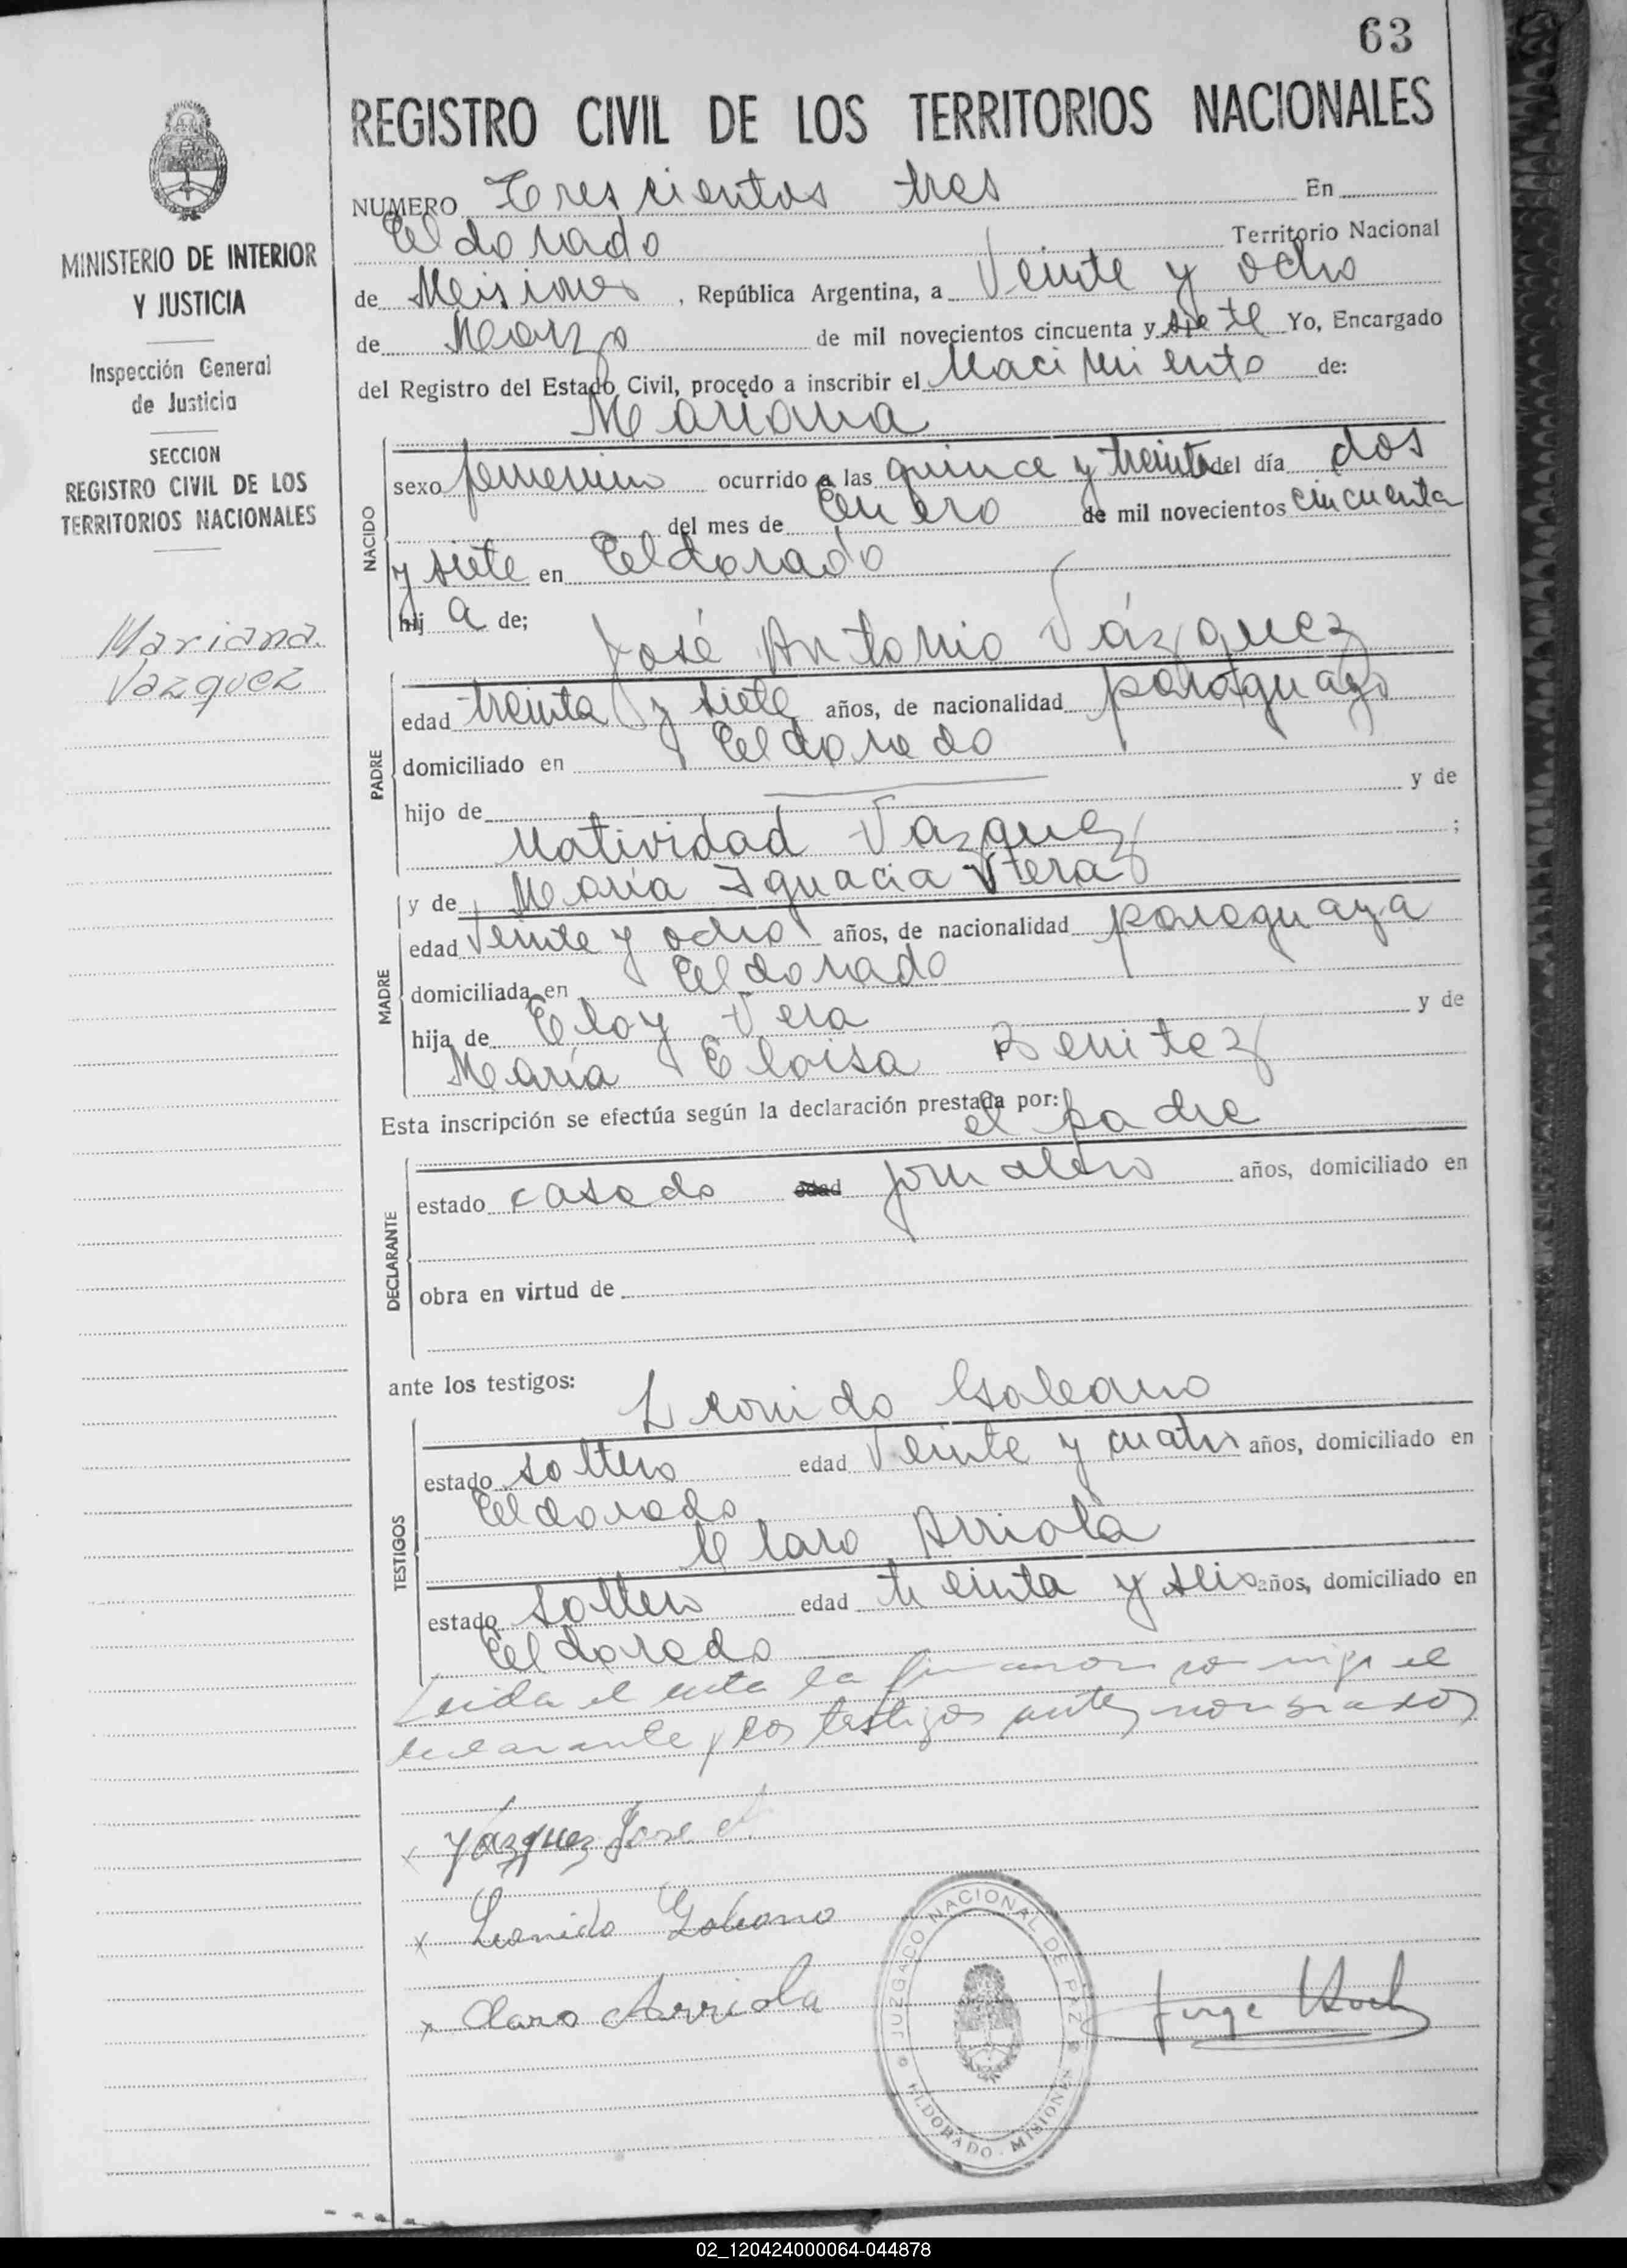 63
REGISTRO CIVIL DE LOS TERRITORIOS NACIONALES
MINISTERIO DE INTERIOR
Y JUSTICIA
Inspección General
de Justicia
SECCION
REGISTRO CIVIL DE LOS
TERRITORIOS NACIONALES
Mariana
Vazquez
NUMERO Trescientos tres En
Eldorado Territorio Nacional
de Misiones, República Argentina, a Veinte y ocho
de Marzo de mil novecientos cincuenta y siete Yo, Encargado
del Registro del Estado Civil, procedo a inscribir el Nacimiento de:
Mariana
NACIDO
sexo femenino ocurrido a las quince y treinta del día dos
del mes de Enero de mil novecientos cincuenta
y siete en Eldorado
hij a de;
José Antonio Vázquez
PADRE
edad treinta y siete años, de nacionalidad paraguayo
domiciliado en Eldorado
hijo de y de
Natividad Vazquez ;
y de María Ignacia Vera
MADRE
edad Veinte y ocho años, de nacionalidad paraguaya
domiciliada en Eldorado
hija de Eloy Vera y de
María Eloisa Benitez
Esta inscripción se efectúa según la declaración prestada por:
el padre
DECLARANTE
estado casado edad jornalero años, domiciliado en
obra en virtud de
ante los testigos:
Leonido Galeano
TESTIGOS
estado soltero edad Veinte y cuatro años, domiciliado en
Eldorado
Claro Arriola
estado soltero edad treinta y seis años, domiciliado en
Eldorado
Leida el acta la firmaron conmigo el
declarante y los testigos antes nombrados
x Vázquez José A
x Leonido Galeano
x Claro Arriola
JUZGADO NACIONAL DE PAZ
ELDORADO - MISIONES
Jorge
02_120424000064-044878